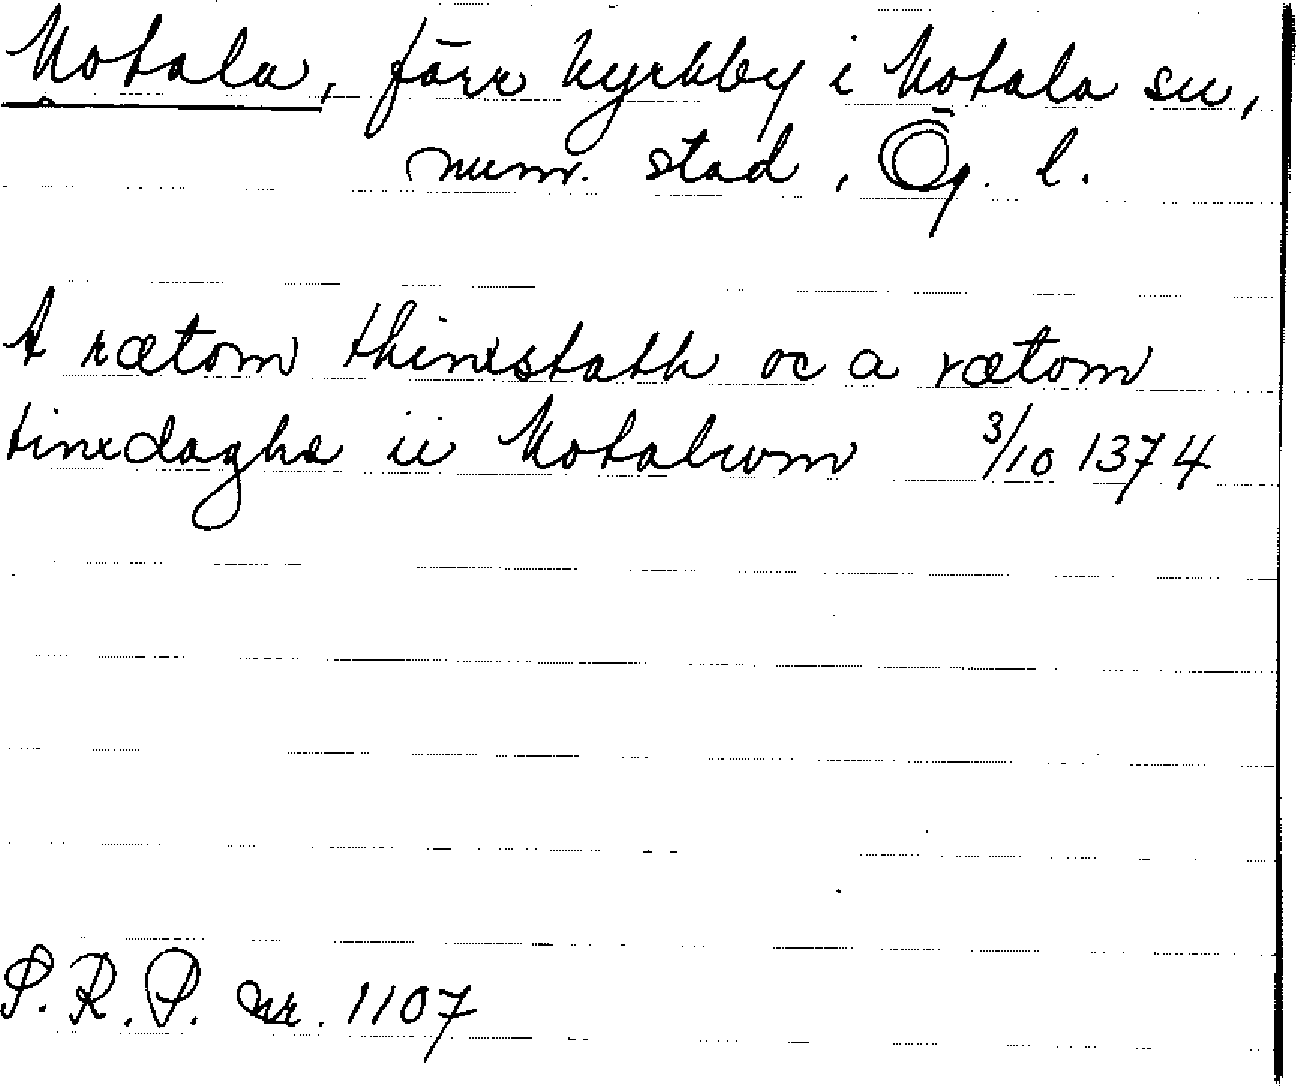 Motala, förr kyrkby i Motala sn,
numr. stad, Ög. l.
A rætom thinxstath oc a rætom
tinxdaghe ii Motalæom 3/10 1374
S.R.P. nr. 1107